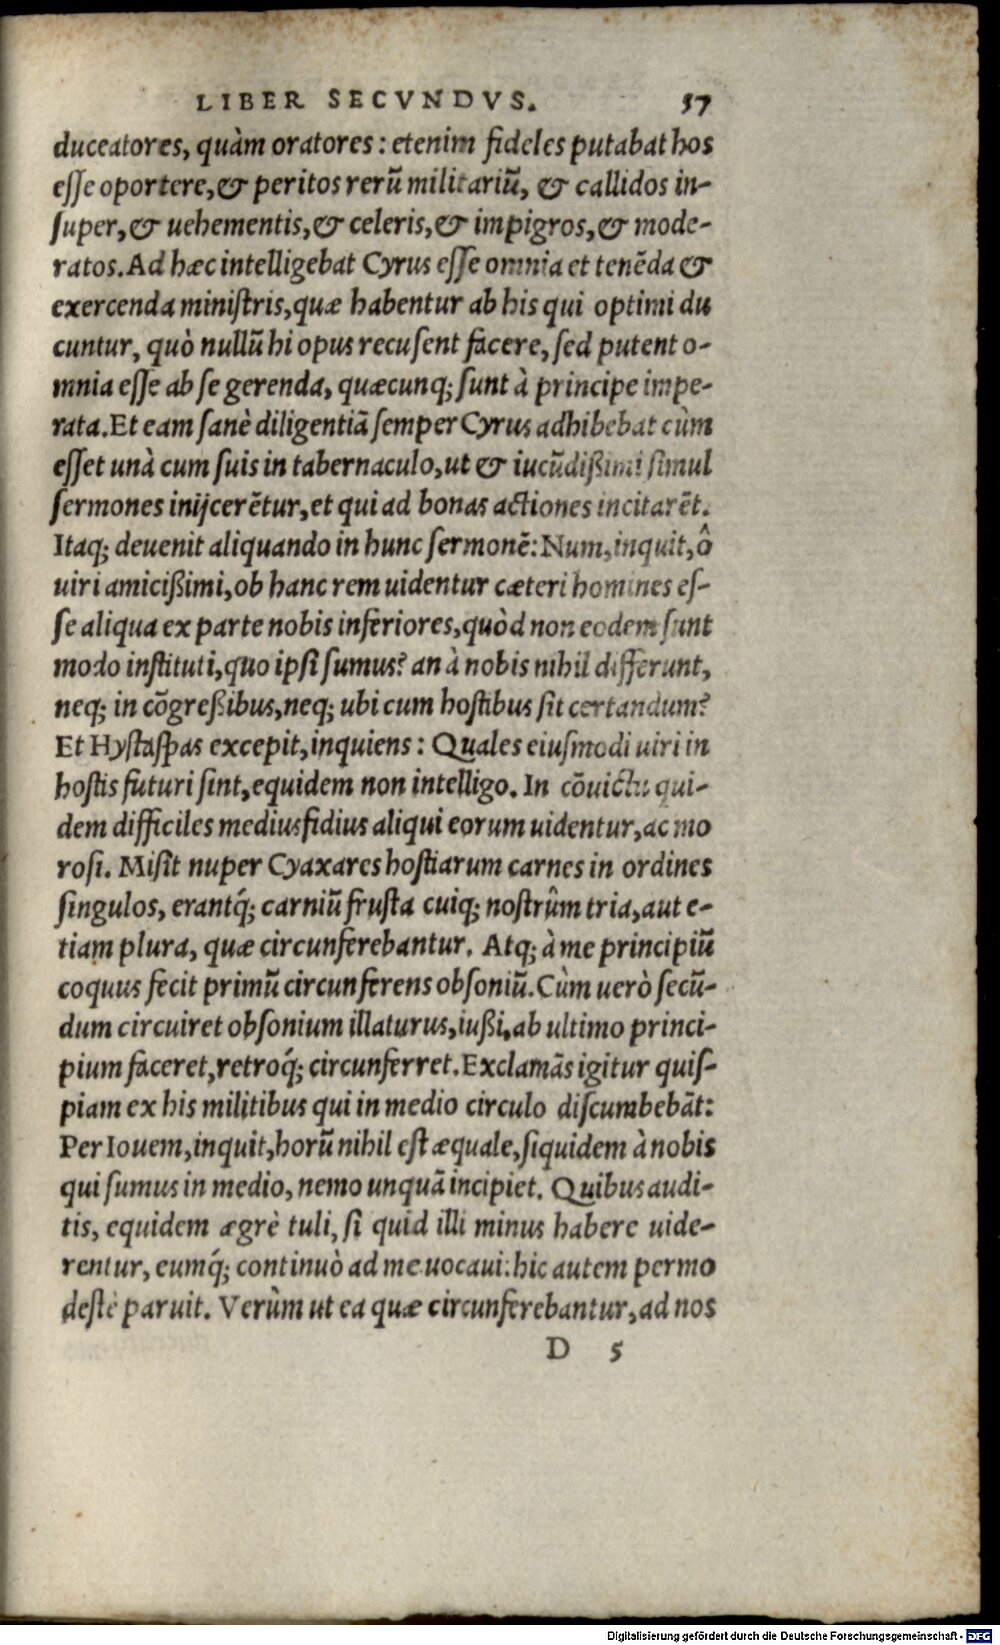 LIBER SECVNDVS. 57
duceatores, quàm oratores: etenim fideles putabat hos
esse oportere, & peritos rerũ militariũ, & callidos in-
super, & uehementis, & celeris, & impigros, & mode-
ratos. Ad hæc intelligebat Cyrus esse omnia et tenẽda &
exercenda ministris, quæ habentur ab his qui optimi du
cuntur, quò nullũ hi opus recusent facere, sed putent o-
mnia esse ab se gerenda, quæcunq; sunt à principe impe-
rata. Et eam sanè diligentiã semper Cyrus adhibebat cùm
esset unà cum suis in tabernaculo, ut & iucũdißimi simul
sermones inijcerẽtur, et qui ad bonas actiones incitarẽt.
Itaq; deuenit aliquando in hunc sermonẽ: Num, inquit, ô
uiri amicißimi, ob hanc rem uidentur cæteri homines es-
se aliqua ex parte nobis inferiores, quòd non eodem sunt
modo instituti, quo ipsi sumus? an à nobis nihil differunt,
neq; in cõgreßibus, neq; ubi cum hostibus sit certandum?
Et Hystaspas excepit, inquiens: Quales eiusmodi uiri in
hostis futuri sint, equidem non intelligo. In cõuictu qui-
dem difficiles mediusfidius aliqui eorum uidentur, ac mo
rosi. Misit nuper Cyaxares hostiarum carnes in ordines
singulos, erantq́; carniũ frusta cuiq; nostrûm tria, aut e-
tiam plura, quæ circunferebantur. Atq; à me principiũ
coquus fecit primũ circunferens obsoniũ. Cùm uerò secũ-
dum circuiret obsonium illaturus, iußi, ab ultimo princi-
pium faceret, retroq́; circunferret. Exclamãs igitur quis-
piam ex his militibus qui in medio circulo discumbebãt:
Per Iouem, inquit, horũ nihil est æquale, siquidem à nobis
qui sumus in medio, nemo unquã incipiet. Quibus audi-
tis, equidem ægrè tuli, si quid illi minus habere uide-
rentur, eumq́; continuò ad me uocaui: hic autem permo
destè paruit. Verùm ut ea quæ circunferebantur, ad nos
D 5
Digitalisierung gefördert durch die Deutsche Forschungsgemeinschaft - DFG